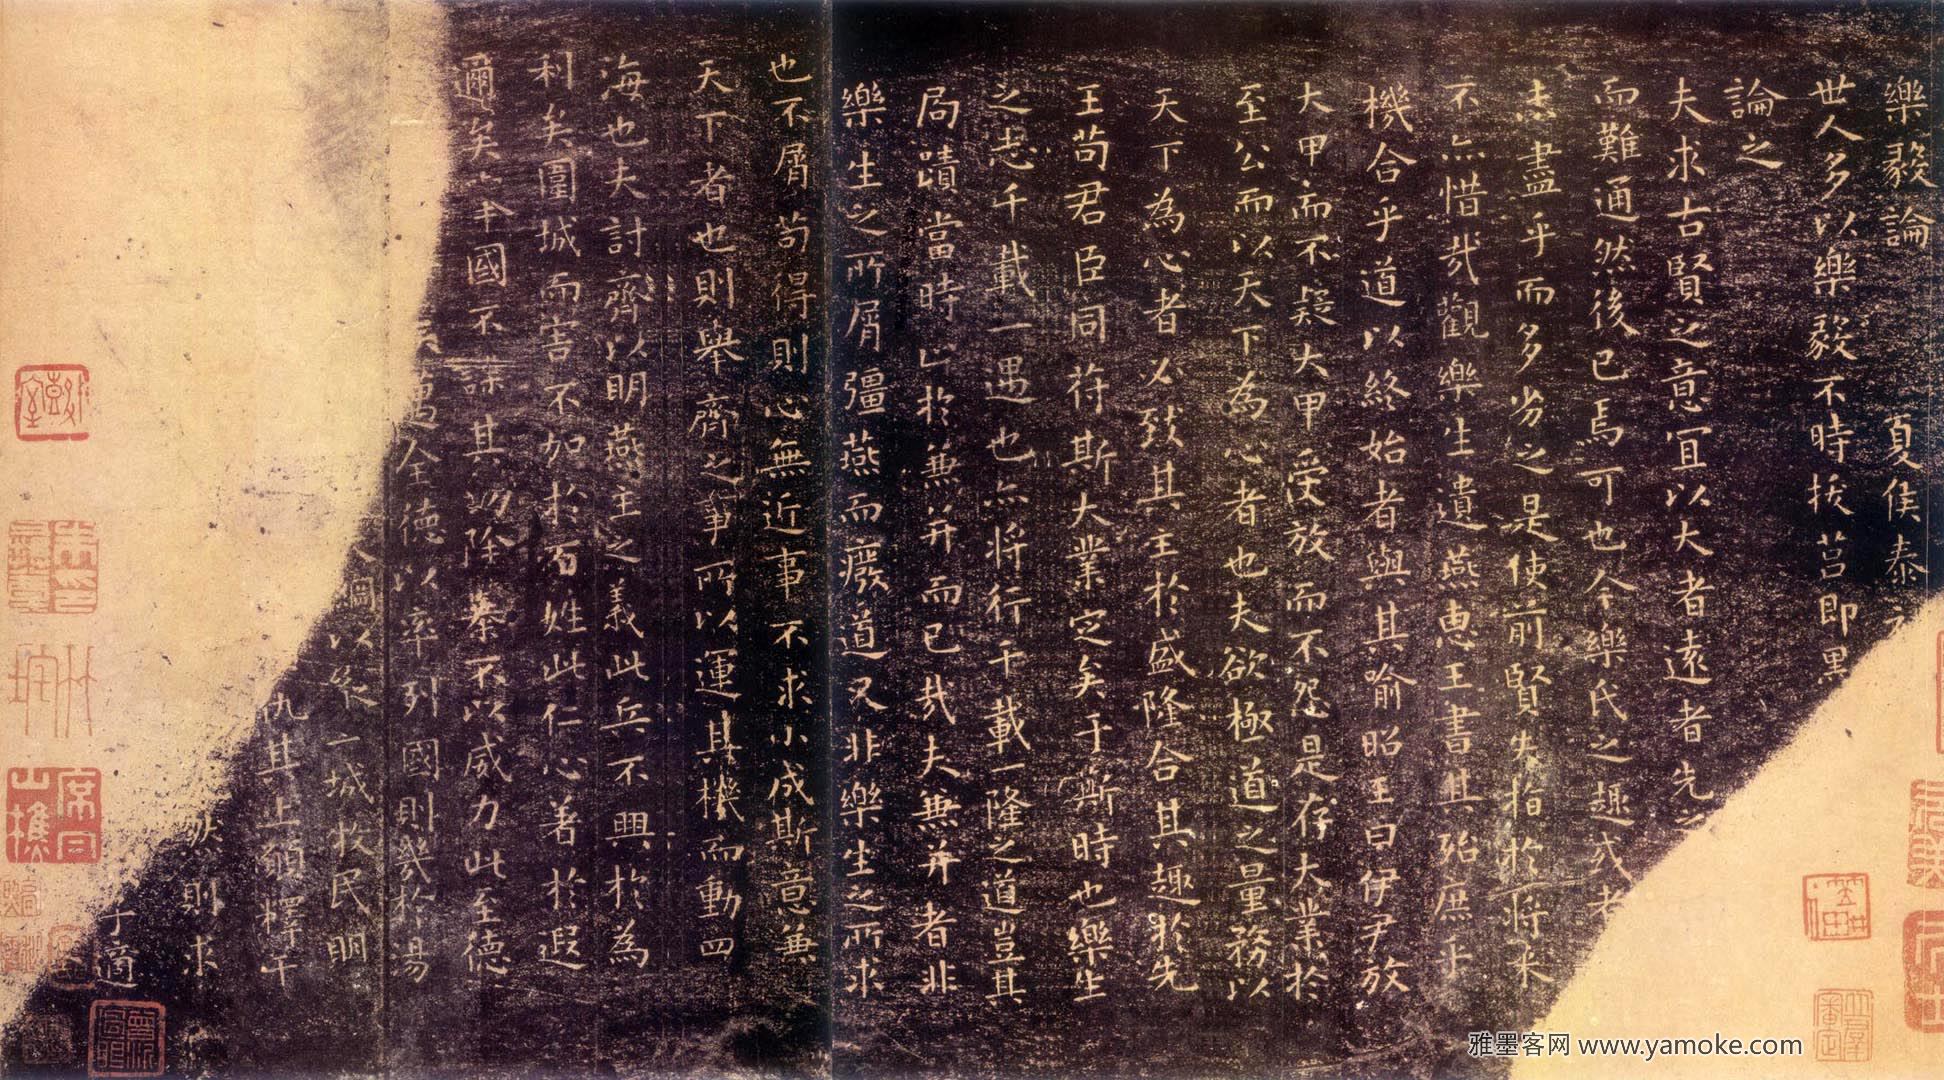 樂毅論 夏侯泰
世人多以樂毅不時拔莒即黑
論之
夫求古賢之意宜以大者遠者先之
而難通然後已焉可也今樂氏之趣或者
未盡乎而多劣之是使前賢失指於將来
不亦惜哉觀樂生遺燕惠王書其殆庶乎
機合乎道以終始者與其喻昭王曰伊尹放
大甲而不疑大甲受放而不怨是存大業於
至公而以天下為心者也夫欲極道之量務以
天下為心者必致其主於盛隆合其趣於先
王苟君臣同符斯大業定矣于斯時也樂生
之志千載一遇也亦將行千載一隆之道豈其
局蹟當時止於兼并而已哉夫兼并者非
樂生之所屑彊燕而廢道又非樂生之所求
也不屑苟得則心無近事不求小成斯意兼
天下者也則舉齊之事所以運其機而動四
海也夫討齊以明燕主之義此兵不興於為
利矣圍城而害不加於百姓此仁心著於遐
邇矣舉國不謀其功除暴不以威力此至德
全德以率列國則幾於湯
以縱二城牧民明
仇其上願釋干
則求
于適
雅墨客网 www.yamoke.com